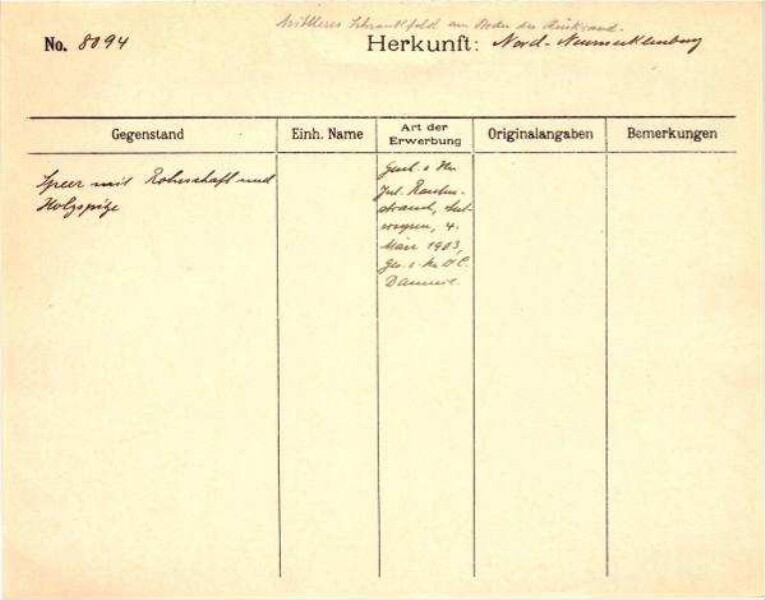 Mittleres Schrankfeld am Boden der Rückwand.
No. 8094 Herkunft: Nord-Neumecklenburg
Gegenstand Einh. Name Art der Erwerbung Originalangaben Bemerkungen
Speer mit Rohrschaft und
Holzspitze
v. Hr.
Jul.
4.
März 1903,
Ges. v. Hr. O. C.